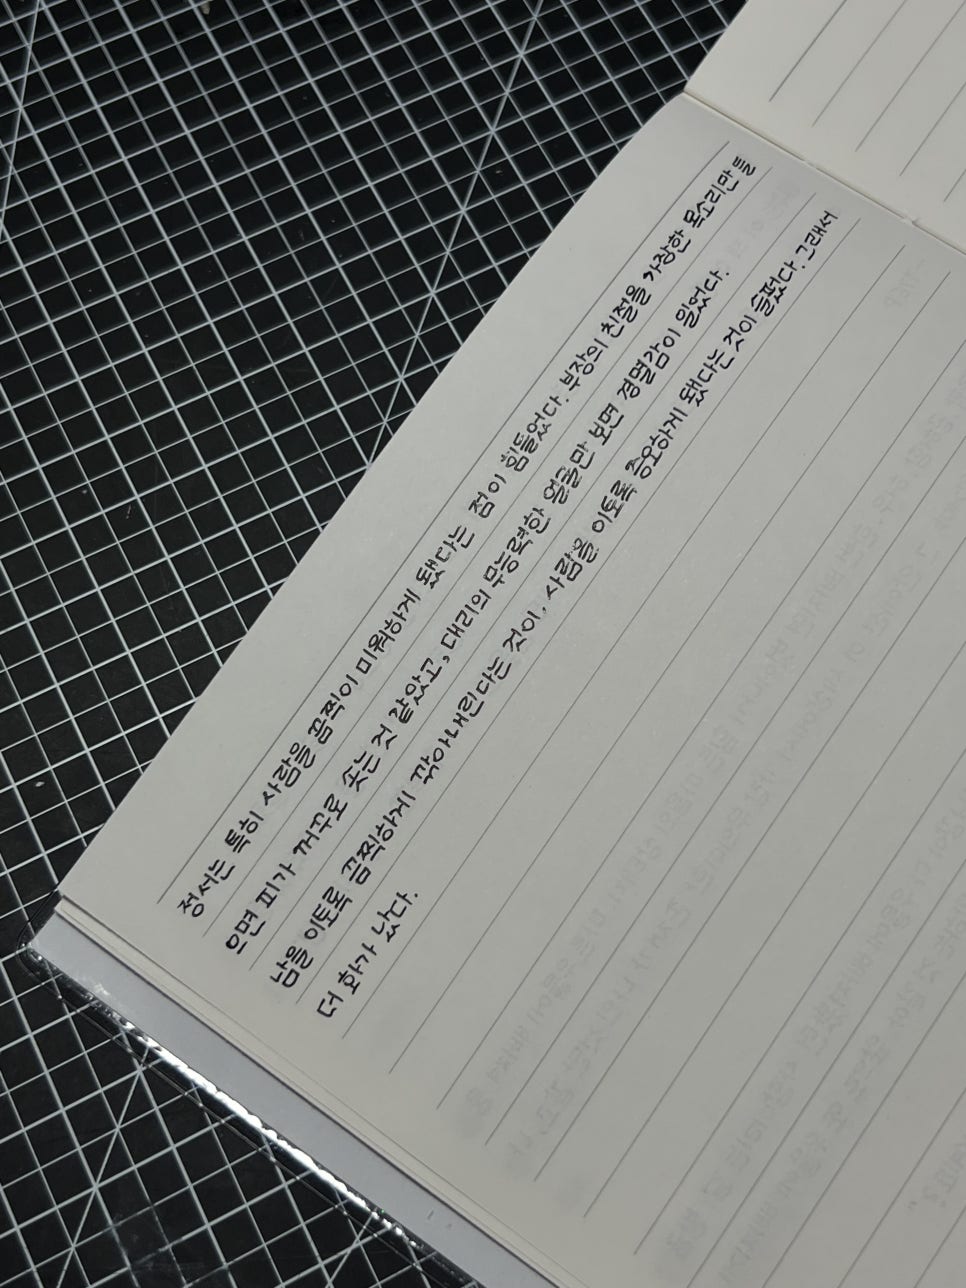 정서는 특히 사람을 끔찍이 미워하게 됐다는 점이 힘들었다. 부장의 친절을 가장한 목소리만 들
으면 피가 거꾸로 솟는 것 같았고, 대리의 무능력한 얼굴만 보면 경멸감이 일었다.
남을 이토록 끔찍하게 깎아내린다는 것이, 사람을 이토록 증오하게 됐다는 것이 슬펐다. 그래서
더 화가 났다.